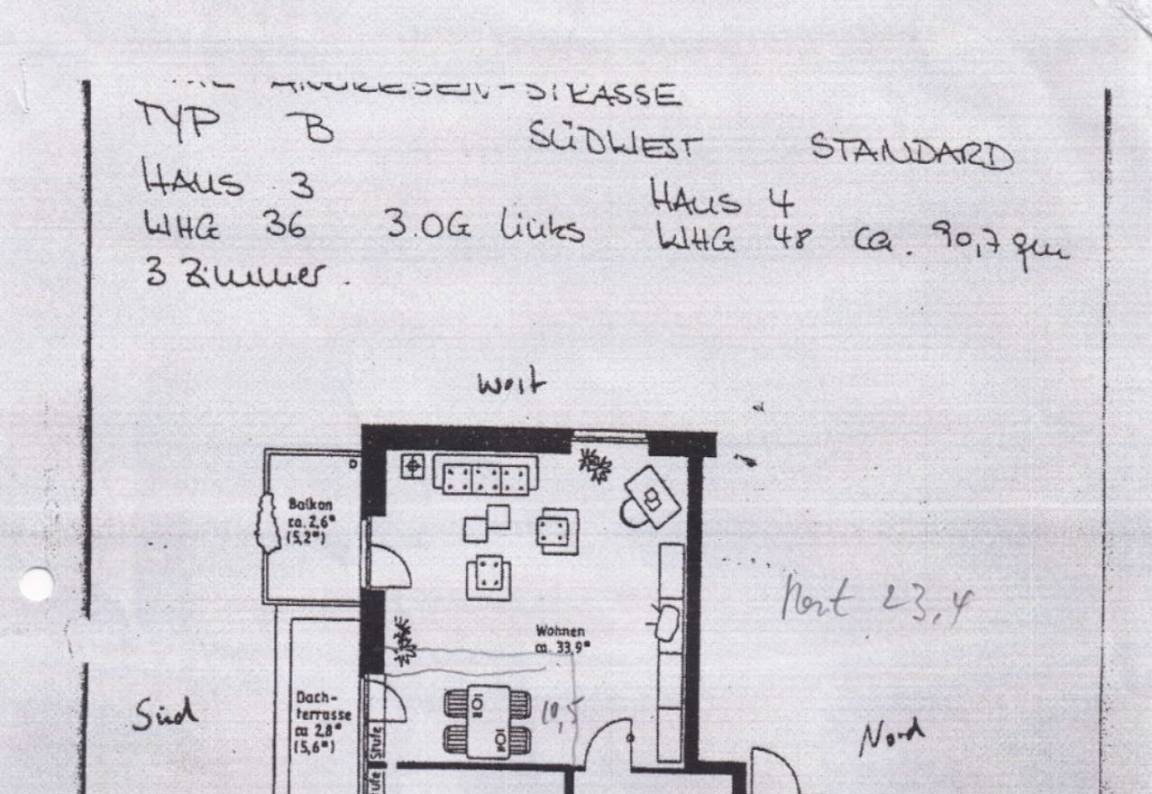 ANDRESEN-STRASSE
TYP B SÜDWEST STANDARD
HAUS 3 HAUS 4
WHG 36 3.OG links WHG 48 ca. 90,7 qm
3 Zimmer.
West
Balkon
ca. 2,6m²
(5,2m²)
23,4
Wohnen
ca. 33,9m²
Dach-
terrasse
ca 2,8m²
(5,6m²)
10,5
Süd
Nord
Stufe